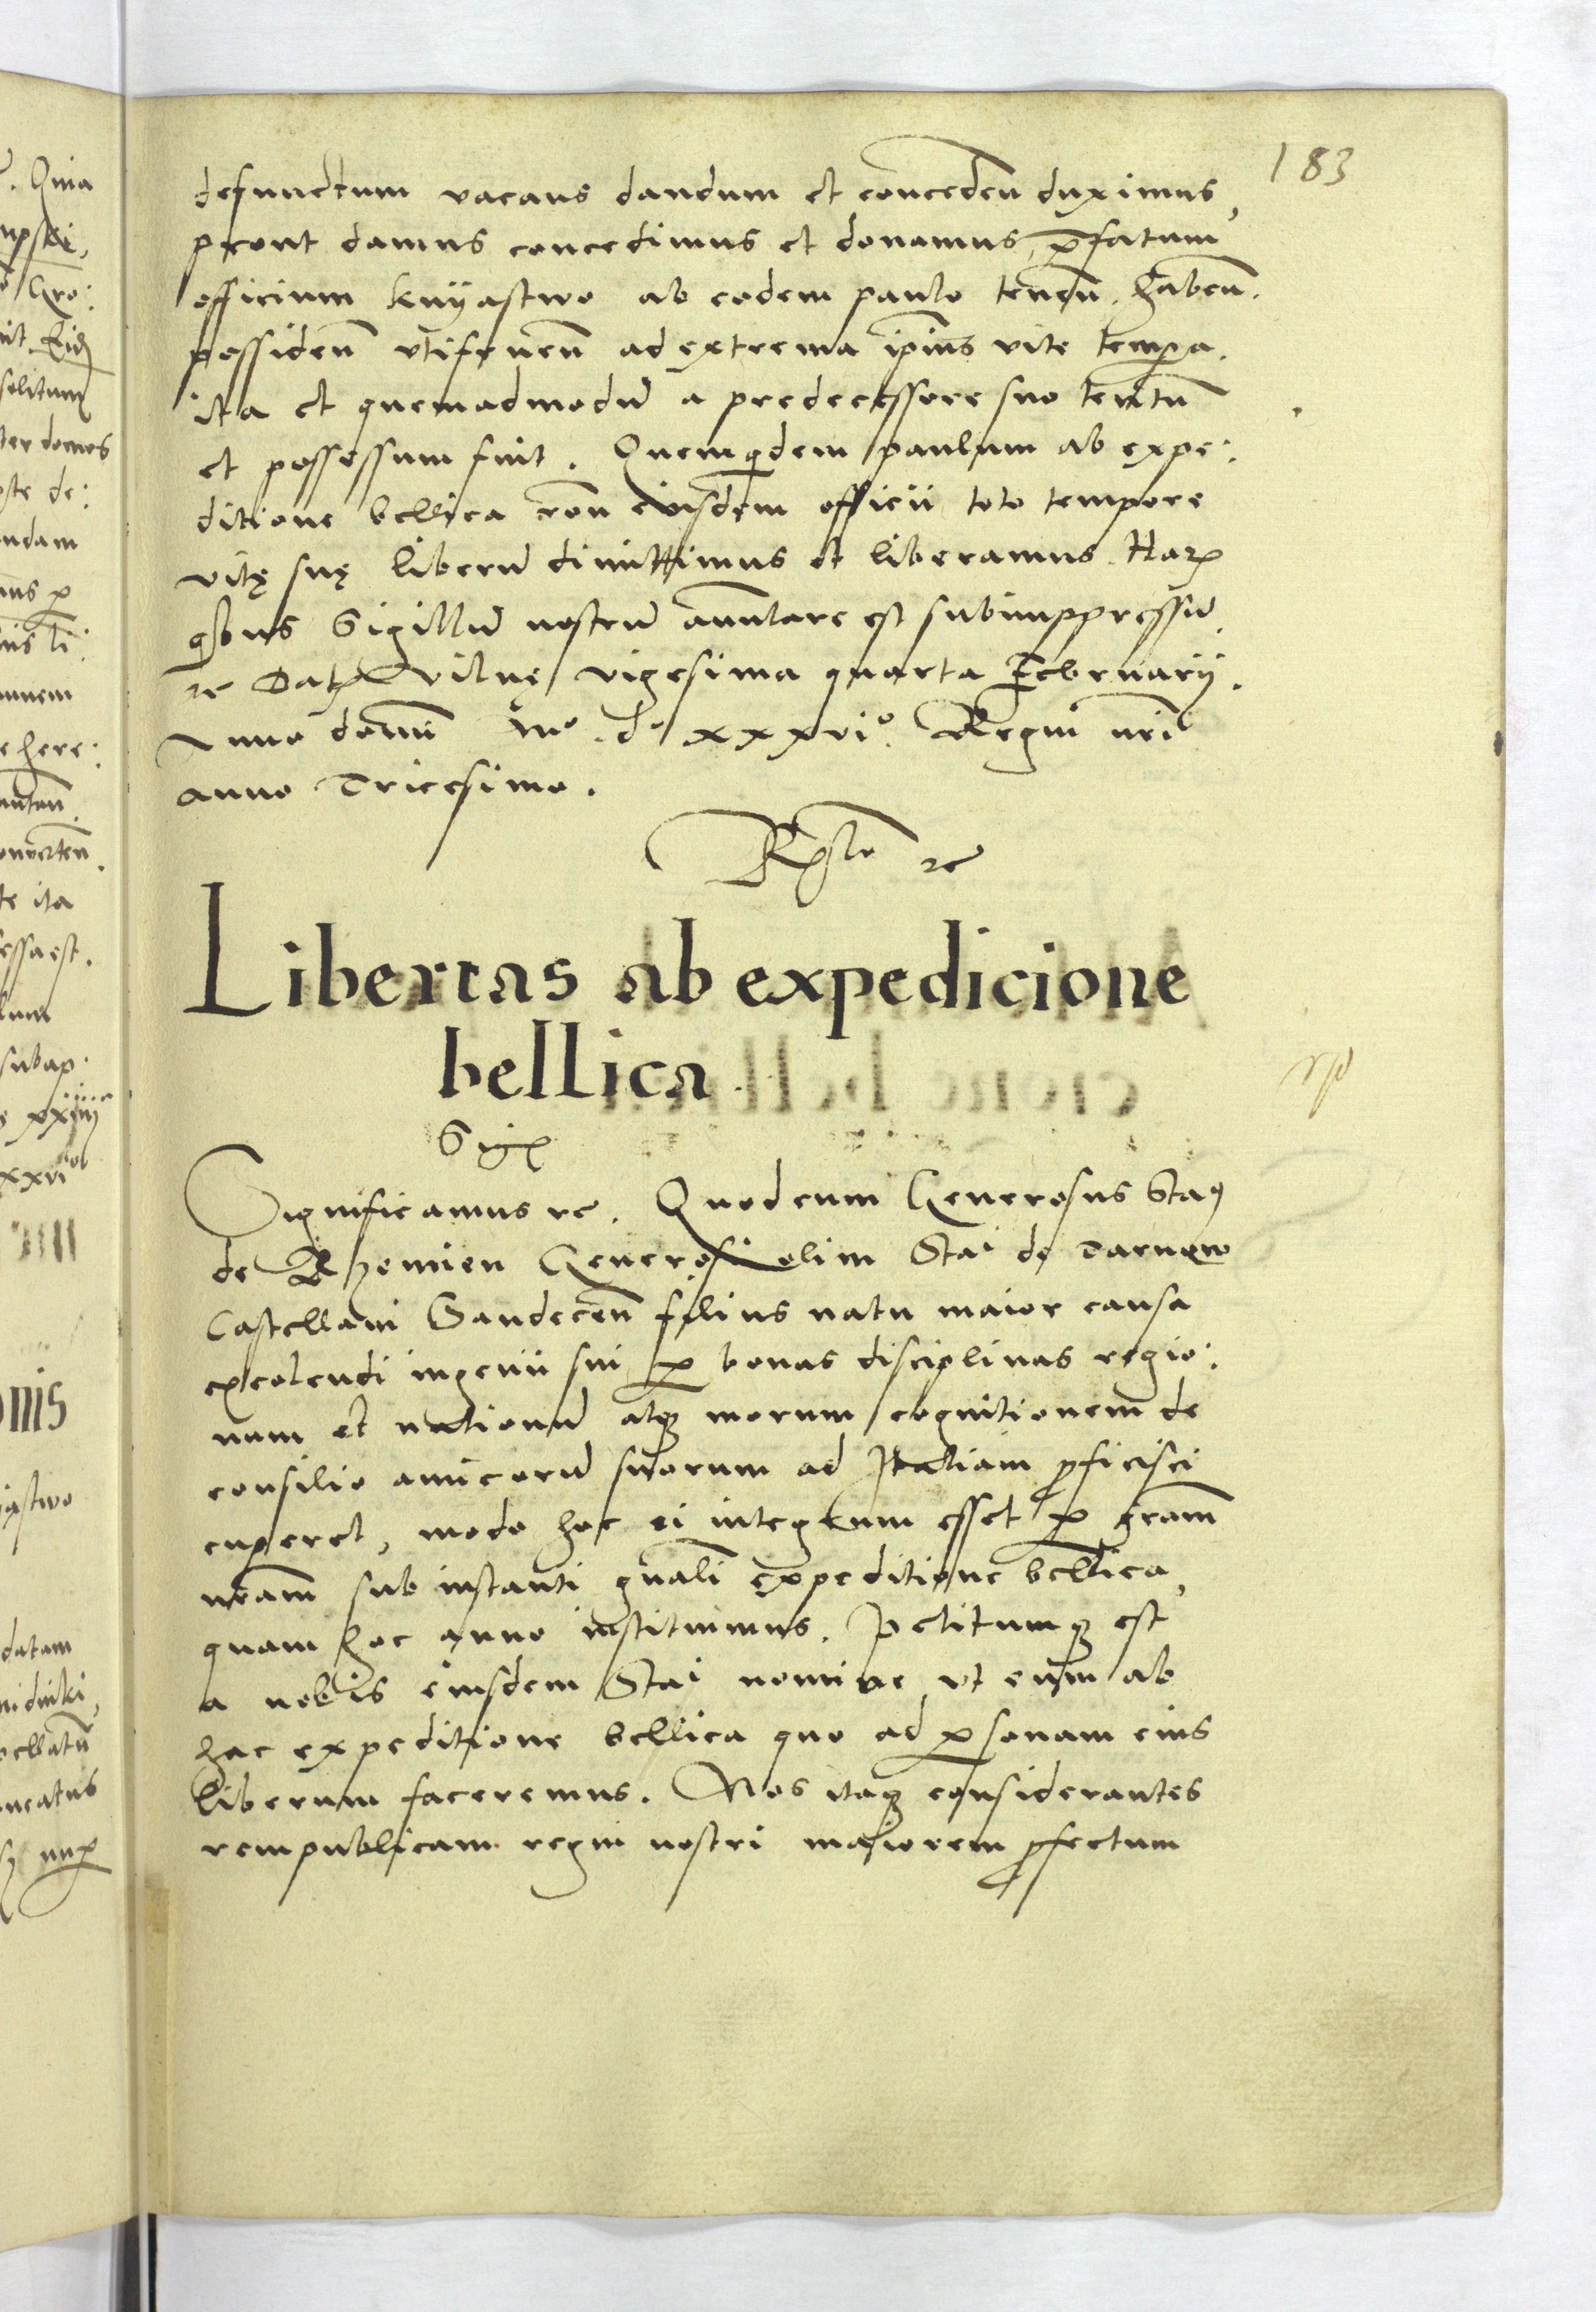 183
defunctum vacans dandum et conceden̄ duximus,
prout damus concedimus et donamus, p̄fatum
officium knyastwo ab eodem paulo tenen̄. haben̄.
possiden̄ vtifruen̄ ad extrema ip̄ius vite temp̄a.
ita et quemadmodū a predecessore suo tentū
et possessum fuit. Quemq̄dem paulum ab expe:
ditione bellica ron̄ eiusdem officii toto tempore
vitę suę liberū dimittimus et liberamus. Harꝝ
qͥbus Sigillū nostrū annulare est subimppressū.
⁊c Datꝝ vilnę vigesima quarta Februarij.
Anno domī Mº. dº xxxviº. Regni nr̄i
anno Tricesimo.
⁊c
Libertas ab expedicione
bellica.
Sigꝝ
Significamus ⁊c. Quod cum Generosus Staꝰ
de Rzemien Generosi olim Staⁱ de Tarnow
Castellani Sandecen̄ filius natu maior causa
excolendi ingenii sui ꝑ bonas disciplinas regio:
num et nationū atqꝫ morum cognitionem de
consilio amicorū suorum ad Italiam ꝓficisci
cuperet, modo hoc ei integrum esset ꝑ gr̄am
nr̄am sub instanti gn̄ali expeditione bellica,
quam hoc anno instituimus. Petitumqꝫ est
a nobis eiusdem Staⁱ nomine vt eum ab
hac expeditione bellica quo ad ꝑsonam eius
liberum faceremus. Nos itaqꝫ considerantes
rempublicam regni nostri maiorem ꝓfectum